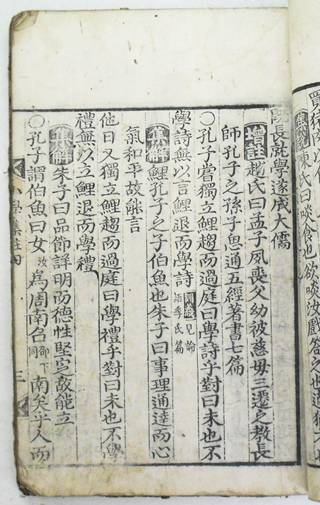 買猪肉以食
陳氏曰啖食也欲啖汝戲答之也猶
長就學遂成大儒
增註趙氏曰孟子夙喪父幼被慈母三遷之教長
師孔子之孫子思通五經著書七篇
○孔子嘗獨立鯉趨而過庭曰學詩乎對曰未也不
學詩無以言鯉退而學詩見論語季氏篇
集解鯉孔子之子伯魚也朱子曰事理通達而心
氣和平故能言
他日又獨立鯉趨而過庭曰學禮乎對曰未也不學
禮無以立鯉退而學禮
集解朱子曰品節詳明而德性堅定故能立
○孔子謂伯魚曰女汝爲周南召邵下同南矣乎人而
小學集註 三